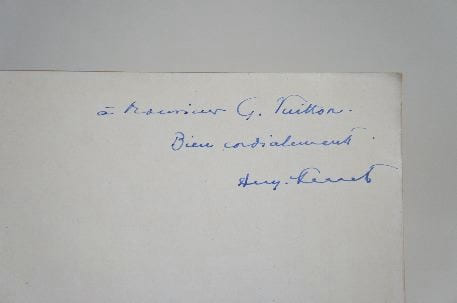 à Monsieur G. Vuitton.
Bien cordialement.
Aug. Perret